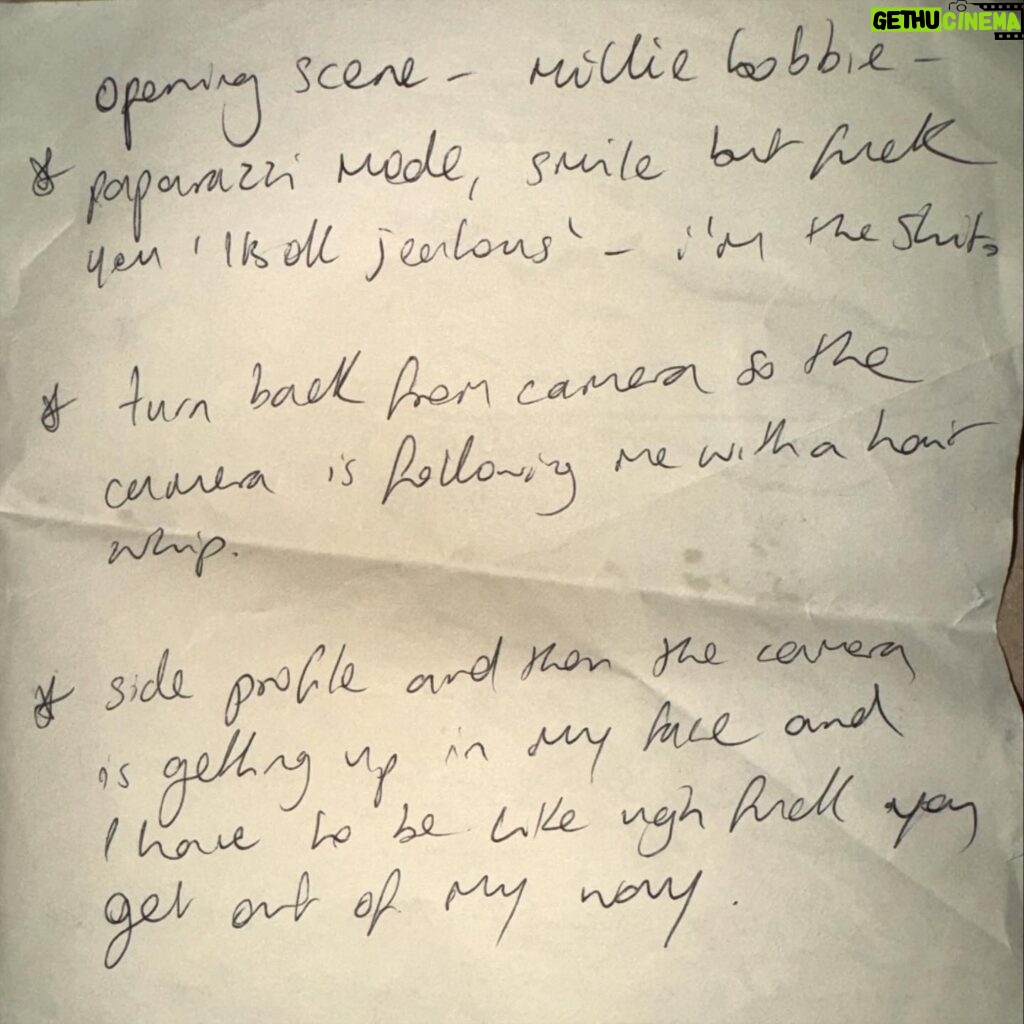 GETHUCINEMA
opening scene - Millie bobbie -
* paparazzi mode, smile but fuck
you 'jealous' - i'm the shit.
* turn back from camera so the
camera is following me with a hair
whip.
* side profile and then the camera
is getting up in my face and
I have to be like ugh fuck you
get out of my way.